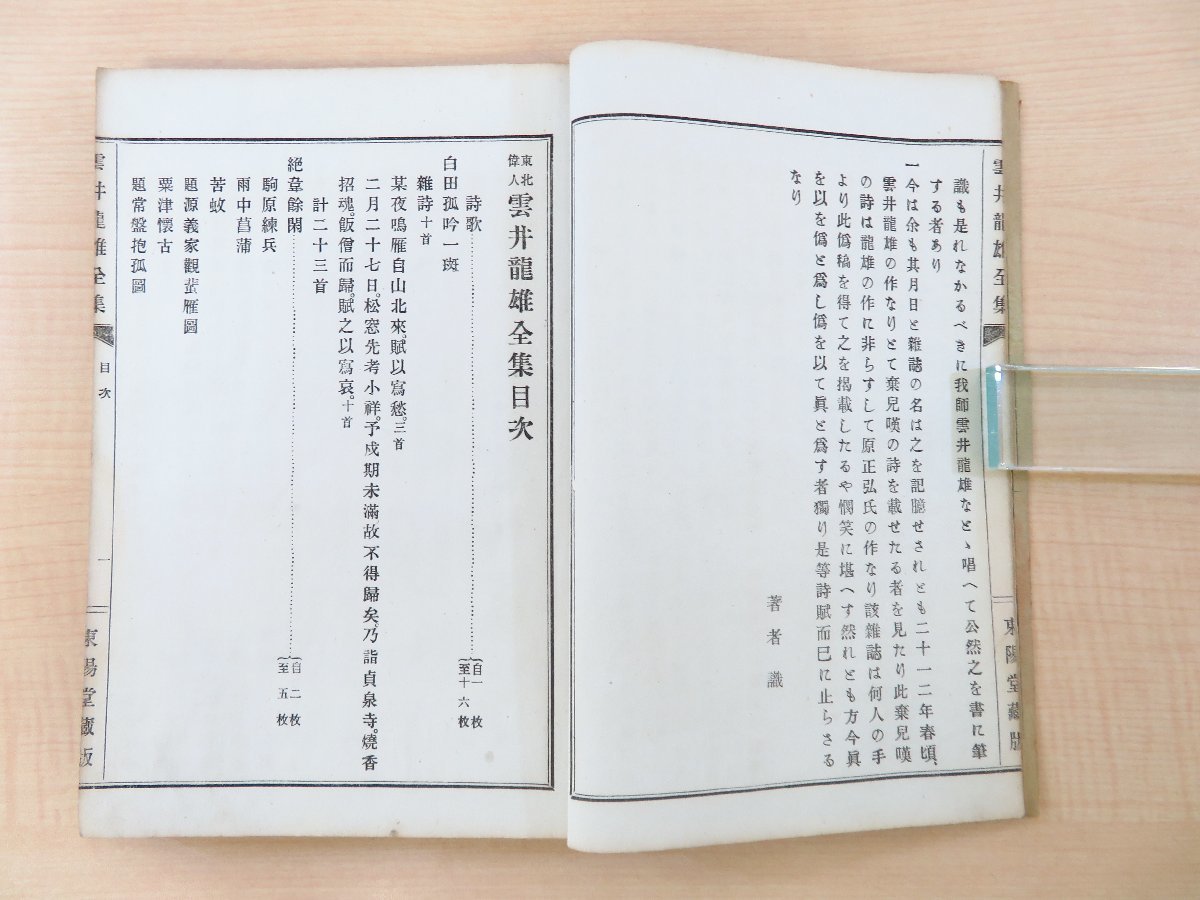 雲井龍雄全集
東陽堂藏版
識も是れなかるべきに我師雲井龍雄などゝ唱へて公然之を書に筆
する者あり
一今は余も其月日と雜誌の名は之を記臆せされとも二十一二年春頃、
雲井龍雄の作なりとて棄兒嘆の詩を載せたる者を見たり此棄兒嘆
の詩は龍雄の作に非らすして原正弘氏の作なり該雜誌は何人の手
より此僞稿を得て之を揭載したるや憫笑に堪へす然れとも方今眞
を以を僞と爲し僞を以て眞と爲す者獨り是等詩賦而已に止らさる
なり
著者識
東北偉人 雲井龍雄全集目次
詩歌……{自一枚 至十六枚
白田孤吟一斑
雜詩十首
某夜鳴雁自山北來。賦以寫愁。三首
二月二十七日。松窓先考小祥。予戍期未滿故不得歸矣。乃詣貞泉寺。燒香
招魂。飯僧而歸。賦之以寫哀。十首
計二十三首
絕韋餘閑……{自二枚 至五枚
駒原練兵
雨中菖蒲
苦蚊
題源義家觀蜚雁圖
粟津懷古
題常盤抱孤圖
雲井龍雄全集
目次
一
東陽堂藏版